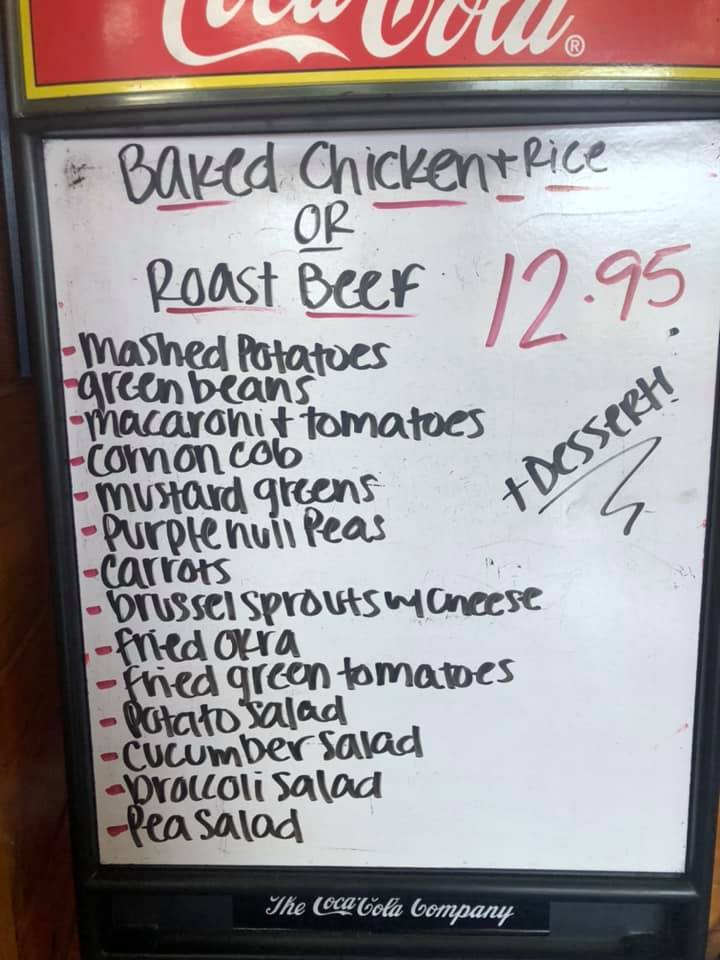 Coca-Cola®
Baked Chicken + Rice
OR
Roast Beef 12.95
- mashed Potatoes
- green beans
- macaroni + tomatoes
- corn on cob
- mustard greens
- Purple hull Peas
- carrots
- brussel sprouts w/ cheese
- fried okra
- fried green tomatoes
- Potato salad
- cucumber salad
- broccoli salad
- Pea salad
+ Dessert!
The Coca-Cola Company